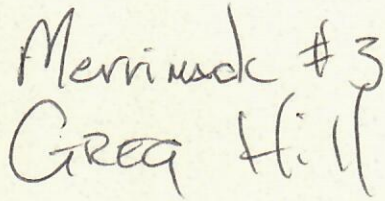 Merrimack #3
Greg Hill